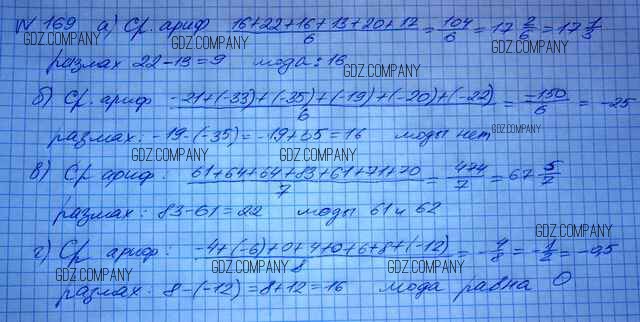 № 169 а) Ср. ариф 16+22+16+13+20+17/6 = 104/6 = 17 2/6 = 17 1/3
GDZ.COMPANY GDZ.COMPANY GDZ.COMPANY
размах 22-13=9 мода: 16
GDZ.COMPANY
б) Ср. ариф -21+(-33)+(-35)+(-19)+(-20)+(-22)/6 = -150/6 = -25
размах: -19-(-35)=-19+35=16 моды нет
GDZ.COMPANY
GDZ.COMPANY GDZ.COMPANY
в) Ср ариф: 61+64+64+83+61+71+70/7 = 474/7 = 67 5/7
размах: 83-61=22 моды 61 и 62
GDZ.COMPANY
г) Ср ариф: -4+(-6)+0+4+0+6+8+(-12)/8 = -4/8 = -1/2 = -0,5
GDZ.COMPANY GDZ.COMPANY GDZ.COMPANY
размах: 8-(-12)=8+12=16 мода равна 0